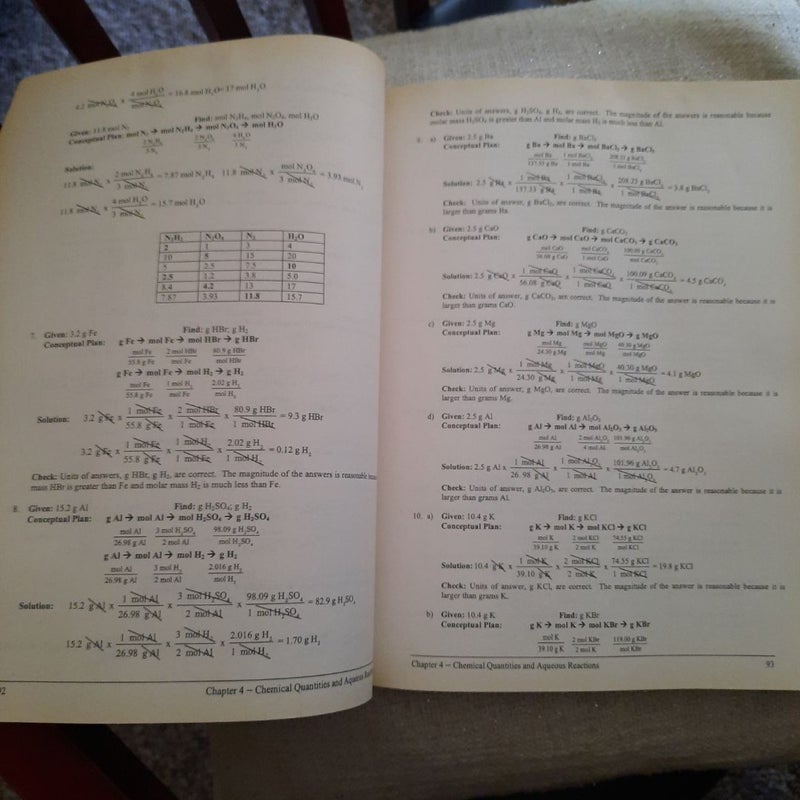 4.2 mol N₂O₄ x 4 mol H₂O / mol N₂O₄ = 16.8 mol H₂O= 17 mol H₂O
Given: 11.8 mol N₂ Find: mol N₂H₄, mol N₂O₄, mol H₂O
Conceptual Plan: mol N₂ → mol N₂H₄ → mol N₂O₄ → mol H₂O
2 N₂H₄ / 3 N₂ 4 H₂O / 3 N₂
Solution:
11.8 mol N₂ x 2 mol N₂H₄ / 3 mol N₂ = 7.87 mol N₂H₄ 11.8 mol N₂ x mol N₂O₄ / 3 mol N₂ = 3.93 mol N₂
11.8 mol N₂ x 4 mol H₂O / 3 mol N₂ = 15.7 mol H₂O
N₂H₄ N₂O₄ N₂ H₂O
2 1 3 4
10 5 15 20
5 2.5 7.5 10
2.5 1.2 3.8 5.0
8.4 4.2 13 17
7.87 3.93 11.8 15.7
7. Given: 3.2 g Fe Find: g HBr, g H₂
Conceptual Plan: g Fe → mol Fe → mol HBr → g HBr
mol Fe / 55.8 g Fe 2 mol HBr / mol Fe 80.9 g HBr / mol HBr
g Fe → mol Fe → mol H₂ → g H₂
mol Fe / 55.8 g Fe 1 mol H₂ / mol Fe 2.02 g H₂ / mol H₂
Solution: 3.2 g Fe x 1 mol Fe / 55.8 g Fe x 2 mol HBr / 1 mol Fe x 80.9 g HBr / 1 mol HBr = 9.3 g HBr
3.2 g Fe x 1 mol Fe / 55.8 g Fe x 1 mol H₂ / 1 mol Fe x 2.02 g H₂ / 1 mol H₂ = 0.12 g H₂
Check: Units of answers, g HBr, g H₂, are correct. The magnitude of the answers is reasonable
mass HBr is greater than Fe and molar mass H₂ is much less than Fe.
8. Given: 15.2 g Al Find: g H₂SO₄, g H₂
Conceptual Plan: g Al → mol Al → mol H₂SO₄ → g H₂SO₄
mol Al / 26.98 g Al 3 mol H₂SO₄ / 2 mol Al 98.09 g H₂SO₄ / mol H₂SO₄
g Al → mol Al → mol H₂ → g H₂
mol Al / 26.98 g Al 3 mol H₂ / 2 mol Al 2.016 g H₂ / mol H₂
Solution: 15.2 g Al x 1 mol Al / 26.98 g Al x 3 mol H₂SO₄ / 2 mol Al x 98.09 g H₂SO₄ / 1 mol H₂SO₄ = 82.9 g H₂SO₄
15.2 g Al x 1 mol Al / 26.98 g Al x 3 mol H₂ / 2 mol Al x 2.016 g H₂ / 1 mol H₂ = 1.70 g H₂
Chapter 4 – Chemical Quantities and Aqueous
Check: Units of answers, g H₂SO₄, g H₂, are correct. The magnitude of the answers is reasonable because
molar mass H₂SO₄ is greater than Al and molar mass H₂ is much less than Al.
a) Given: 2.5 g Ba Find: g BaCl₂
Conceptual Plan: g Ba → mol Ba → mol BaCl₂ → g BaCl₂
mol Ba / 137.33 g Ba 1 mol BaCl₂ / 1 mol Ba 208.23 g BaCl₂ / 1 mol BaCl₂
Solution: 2.5 g Ba x 1 mol Ba / 137.33 g Ba x 1 mol BaCl₂ / 1 mol Ba x 208.23 g BaCl₂ / 1 mol BaCl₂ = 3.8 g BaCl₂
Check: Units of answer, g BaCl₂, are correct. The magnitude of the answer is reasonable because it is
larger than grams Ba.
b) Given: 2.5 g CaO Find: g CaCO₃
Conceptual Plan: g CaO → mol CaO → mol CaCO₃ → g CaCO₃
mol CaO / 56.08 g CaO mol CaCO₃ / mol CaO 100.09 g CaCO₃ / 1 mol CaCO₃
Solution: 2.5 g CaO x 1 mol CaO / 56.08 g CaO x 1 mol CaCO₃ / 1 mol CaO x 100.09 g CaCO₃ / 1 mol CaCO₃ = 4.5 g CaCO₃
Check: Units of answer, g CaCO₃, are correct. The magnitude of the answer is reasonable because it is
larger than grams CaO.
c) Given: 2.5 g Mg Find: g MgO
Conceptual Plan: g Mg → mol Mg → mol MgO → g MgO
mol Mg / 24.30 g Mg mol MgO / mol Mg 40.30 g MgO / mol MgO
Solution: 2.5 g Mg x 1 mol Mg / 24.30 g Mg x 1 mol MgO / 1 mol Mg x 40.30 g MgO / 1 mol MgO = 4.1 g MgO
Check: Units of answer, g MgO, are correct. The magnitude of the answer is reasonable because it is
larger than grams Mg.
d) Given: 2.5 g Al Find: g Al₂O₃
Conceptual Plan: g Al → mol Al → mol Al₂O₃ → g Al₂O₃
mol Al / 26.98 g Al 2 mol Al₂O₃ / 4 mol Al 101.96 g Al₂O₃ / mol Al₂O₃
Solution: 2.5 g Al x 1 mol Al / 26.98 g Al x 1 mol Al₂O₃ / 1 mol Al x 101.96 g Al₂O₃ / 1 mol Al₂O₃ = 4.7 g Al₂O₃
Check: Units of answer, g Al₂O₃, are correct. The magnitude of the answer is reasonable because it is
larger than grams Al.
10. a) Given: 10.4 g K Find: g KCl
Conceptual Plan: g K → mol K → mol KCl → g KCl
mol K / 39.10 g K 2 mol KCl / 2 mol K 74.55 g KCl / mol KCl
Solution: 10.4 g K x 1 mol K / 39.10 g K x 2 mol KCl / 2 mol K x 74.55 g KCl / 1 mol KCl = 19.8 g KCl
Check: Units of answer, g KCl, are correct. The magnitude of the answer is reasonable because it is
larger than grams K.
b) Given: 10.4 g K Find: g KBr
Conceptual Plan: g K → mol K → mol KBr → g KBr
mol K / 39.10 g K 2 mol KBr / 2 mol K 119.00 g KBr / mol KBr
Chapter 4 – Chemical Quantities and Aqueous Reactions 93